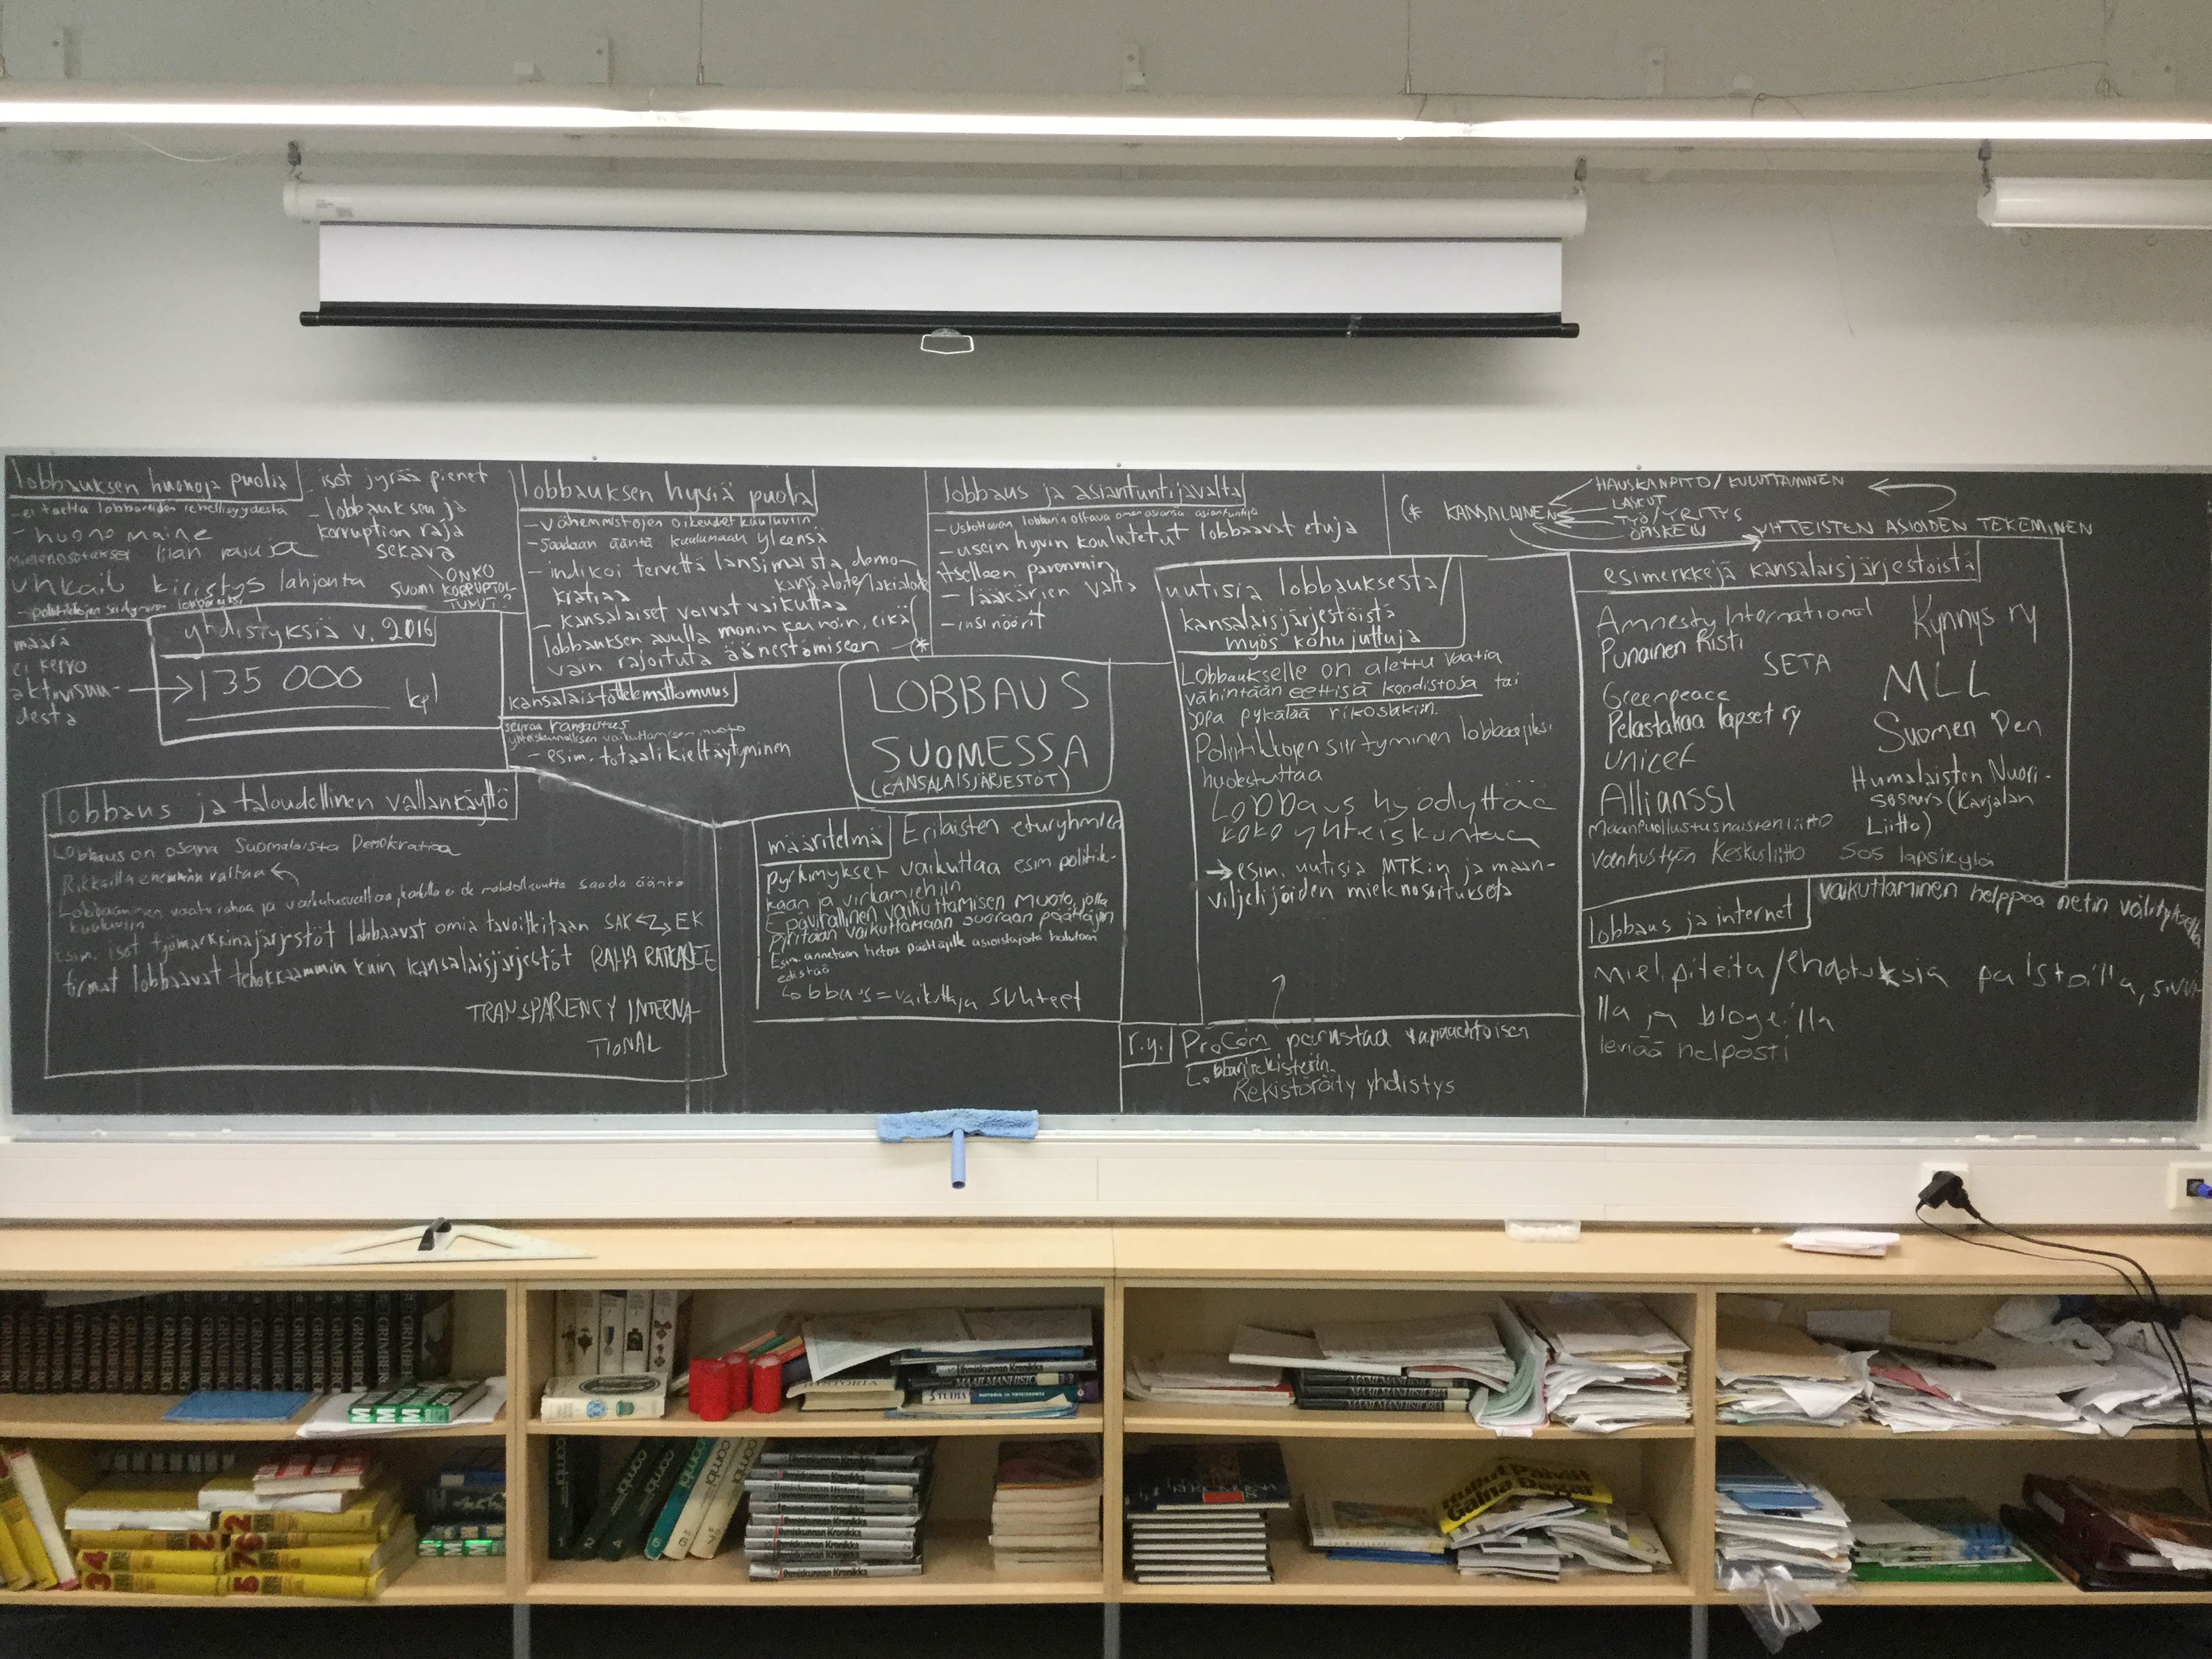 lobbauksen huonoja puolia
- ei taetta lobbareiden rehellisyydestä
- huono maine
mielenosoitukset liian rajuja
uhkailu kiristys lahjonta
- poliitikkojen siirtyminen lobbareiksi
- isot jyrää pienet
- lobbauksen ja
korruption raja
sekava
ONKO
SUOMI KORRUPTOI-
TUNUT?
määrä
ei kerro
aktiivisuu-
desta
yhdistyksiä v. 2016
135 000
kpl
lobbauksen hyviä puolia
- vähemmistöjen oikeudet kuuluviin
- saadaan ääntä kuulumaan yleensä
- indikoi tervettä länsimaista demo-
kratiaa
kansalaiset voivat vaikuttaa
lobbauksen avulla monin keinoin, eikä
vain rajoituta äänestämiseen (*
kansalaistottelemattomuus
seuraa rangaistus
yhteiskunnallisen vaikuttamisen muoto
- esim. totaalikieltäytyminen
lobbaus ja asiantuntijavalta
- Uskottavan lobbarin oltava oman asiansa asiantuntija
- usein hyvin koulutetut lobbaavat etuja
itselleen paremmin
- lääkärien valta
- insinöörit
(* KANSALAINEN
HAUSKANPITO/KULUTTAMINEN
LAKUT
TYÖ/YRITYS
OPISKELU
YHTEISTEN ASIOIDEN TEKEMINEN
LOBBAUS
SUOMESSA
(KANSALAISJÄRJESTÖT)
lobbaus ja taloudellinen vallankäyttö
Lobbaus on osana Suomalaista Demokratiaa
Rikkailla enemmän valtaa
Lobbaaminen vaatii rahaa ja vaikutusvaltaa, kaikilla ei ole mahdollisuutta saada ääntä
kuuluviin
esim. isot työmarkkinajärjestöt lobbaavat omia tavoitteitaan SAK EK
firmat lobbaavat tehokkaammin kuin kansalaisjärjestöt RAHA RATKAISEE
TRANSPARENCY INTERNA-
TIONAL
määritelmä
Erilaisten eturyhmien
pyrkimykset vaikuttaa esim politiik-
kaan ja virkamiehiin
Epävirallinen vaikuttamisen muoto, jolla
pyritään vaikuttamaan suoraan päättäjiin
Esim. annetaan tietoa päättäjille asioista joita halutaan
edistää
Lobbaus = vaikuttaja suhteet
uutisia lobbauksesta/
kansalaisjärjestöistä
myös kohujuttuja
Lobbaukselle on alettu vaatia
vähintään eettisiä koodistoja tai
jopa pykälää rikoslakiin.
Poliitikkojen siirtyminen lobbaajiksi
huolestuttaa
Lobbaus hyödyttää
koko yhteiskuntaa
esim. uutisia MTK:n ja maan-
viljelijöiden mielenosoituksista
r.y.
ProCom perustaa vapaaehtoisen
Lobbarirekisterin
Rekisteröity yhdistys
esimerkkejä kansalaisjärjestöistä
Amnesty International
Punainen Risti
SETA
Greenpeace
Pelastakaa lapset ry
Unicef
Allianssi
Maanpuolustusnaisten liitto
Vanhustyön Keskusliitto
Kynnys ry
MLL
Suomen Pen
Humalaisten Nuori-
soseura (Karjalan
Liitto)
SOS lapsikylä
lobbaus ja internet
vaikuttaminen helppoa netin välityksellä
mielipiteitä/ehdotuksia palstoilla, sivui-
lla ja blogeilla
leviää helposti
GRIMBERG
Ihmiskunnan Kronikka
MAAILMANHISTORIA
STUDIA
HISTORIA
MAAILMANHISTORIA
MAAILMANHISTORIA
combi
combi
combi
combi
Ihmiskunnan Kronikka
Ihmiskunnan Kronikka
Ihmiskunnan Kronikka
Ihmiskunnan Kronikka
Ihmiskunnan Kronikka